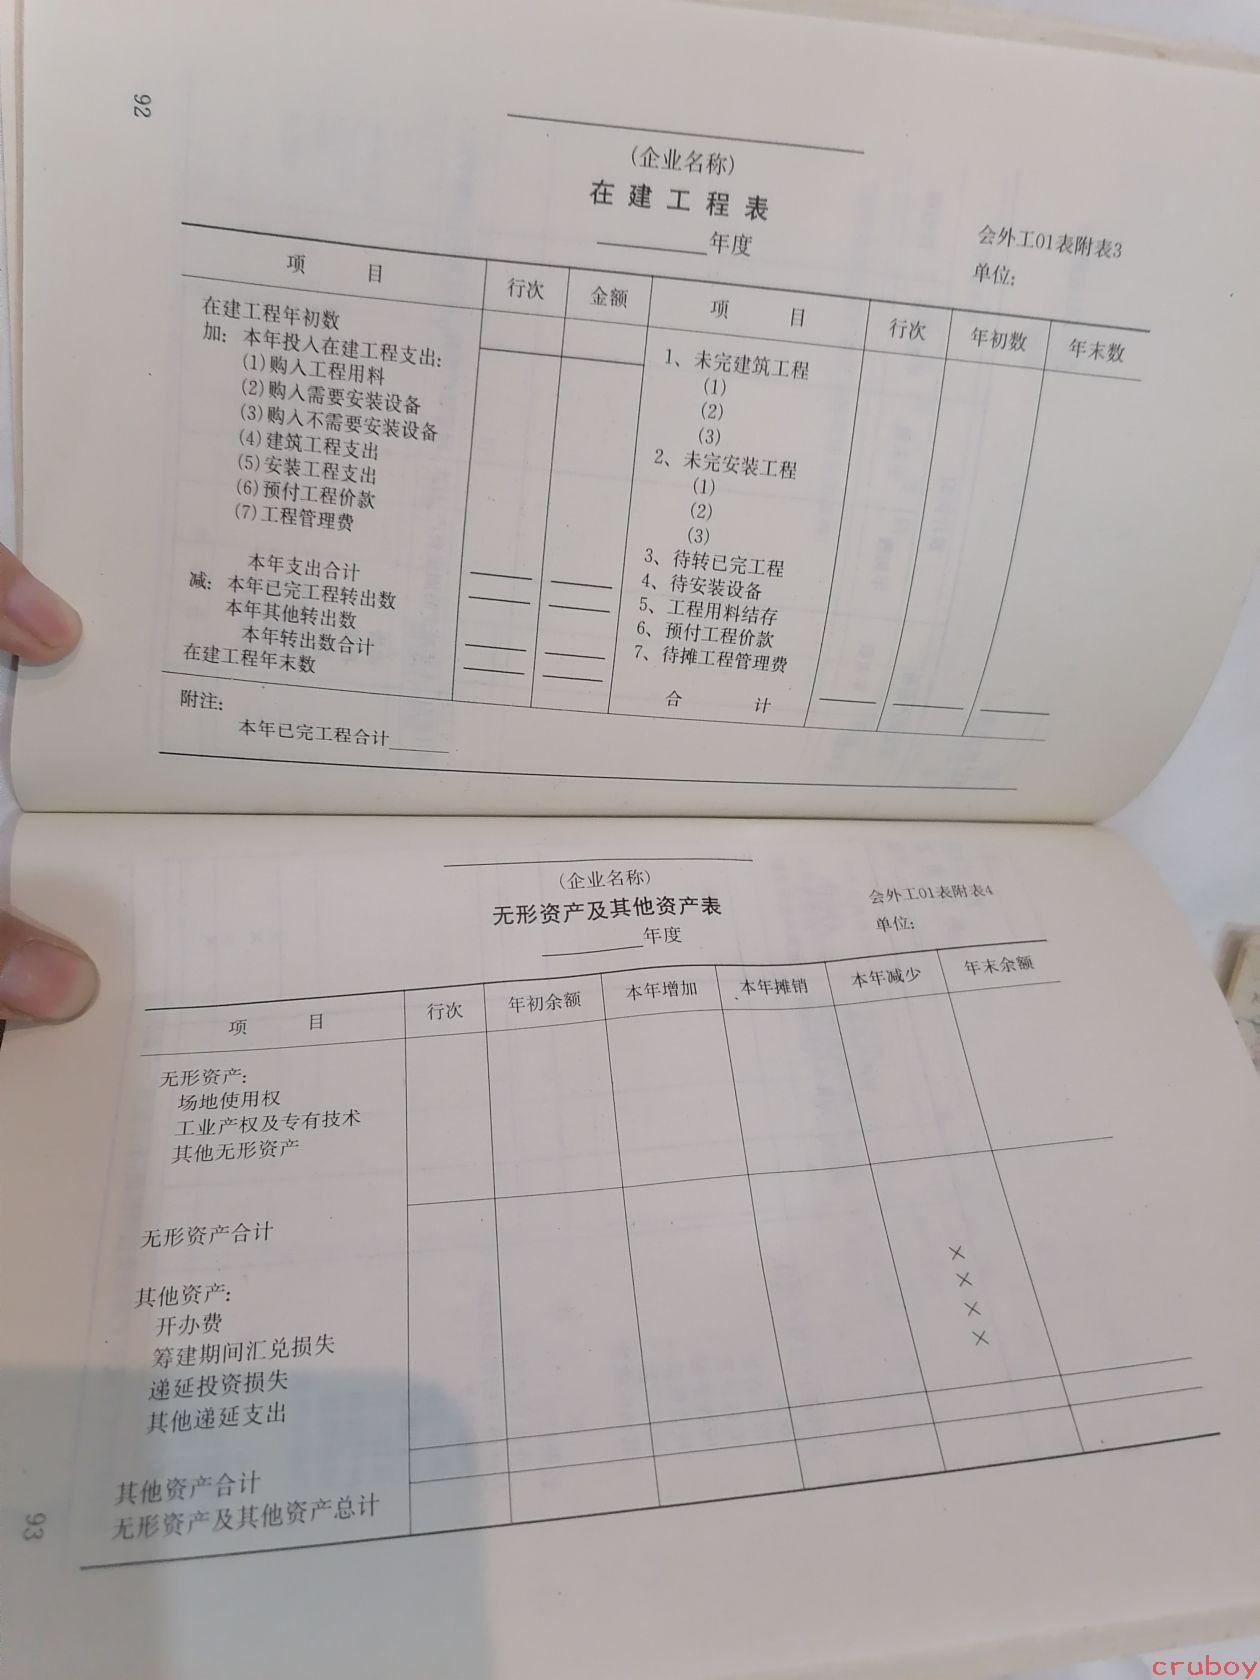 92
(企业名称)
在建工程表
会外工01表附表3
年度
单位:
项 目 行次 金额 项 目 行次 年初数 年末数
在建工程年初数
加: 本年投入在建工程支出:
(1)购入工程用料
(2)购入需要安装设备
(3)购入不需要安装设备
(4)建筑工程支出
(5)安装工程支出
(6)预付工程价款
(7)工程管理费
本年支出合计
减: 本年已完工程转出数
本年其他转出数
本年转出数合计
在建工程年末数
1、未完建筑工程
(1)
(2)
(3)
2、未完安装工程
(1)
(2)
(3)
3、待转已完工程
4、待安装设备
5、工程用料结存
6、预付工程价款
7、待摊工程管理费
合 计
附注:
本年已完工程合计
(企业名称)
无形资产及其他资产表
会外工01表附表4
年度
单位:
项 目 行次 年初余额 本年增加 本年摊销 本年减少 年末余额
无形资产:
场地使用权
工业产权及专有技术
其他无形资产
无形资产合计
其他资产:
开办费 ×
筹建期间汇兑损失 ×
递延投资损失 ×
其他递延支出 ×
其他资产合计
无形资产及其他资产总计
93
cruboy